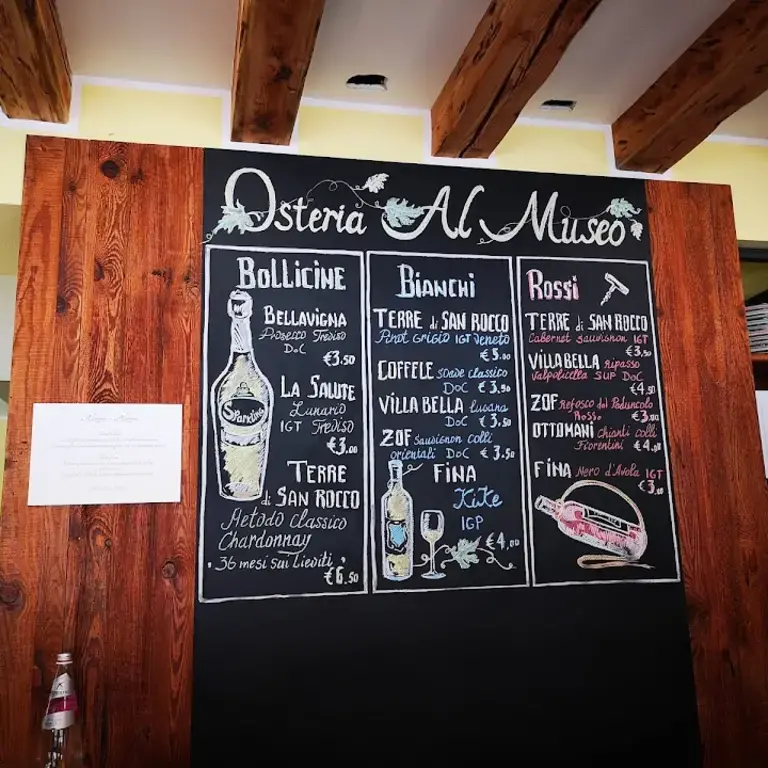 Osteria Al Museo
Bollicine
Bellavigna
Prosecco Treviso
DOC
€3.50
La Salute
Lunario
IGT Treviso
€3.00
Terre
di San Rocco
Metodo classico
Chardonnay
"36 mesi sui lieviti"
€6.50
Sparkling
Bianchi
Terre di San Rocco
Pinot Grigio IGT Veneto
€3.00
Coffele Soave classico
DOC €3.50
Villa Bella Lugana
DOC €3.50
Zof Sauvignon colli
orientali DOC €3.50
Fina
Kike
IGP
€4,00
Rossi
Terre di San Rocco
Cabernet Sauvignon IGT
€3,50
Villa Bella Ripasso
Valpolicella SUP DOC
€4,50
Zof Refosco dal Peduncolo
Rosso €3,00
Ottomani Chianti colli
Fiorentini €4,00
Fina Nero d'Avola IGT